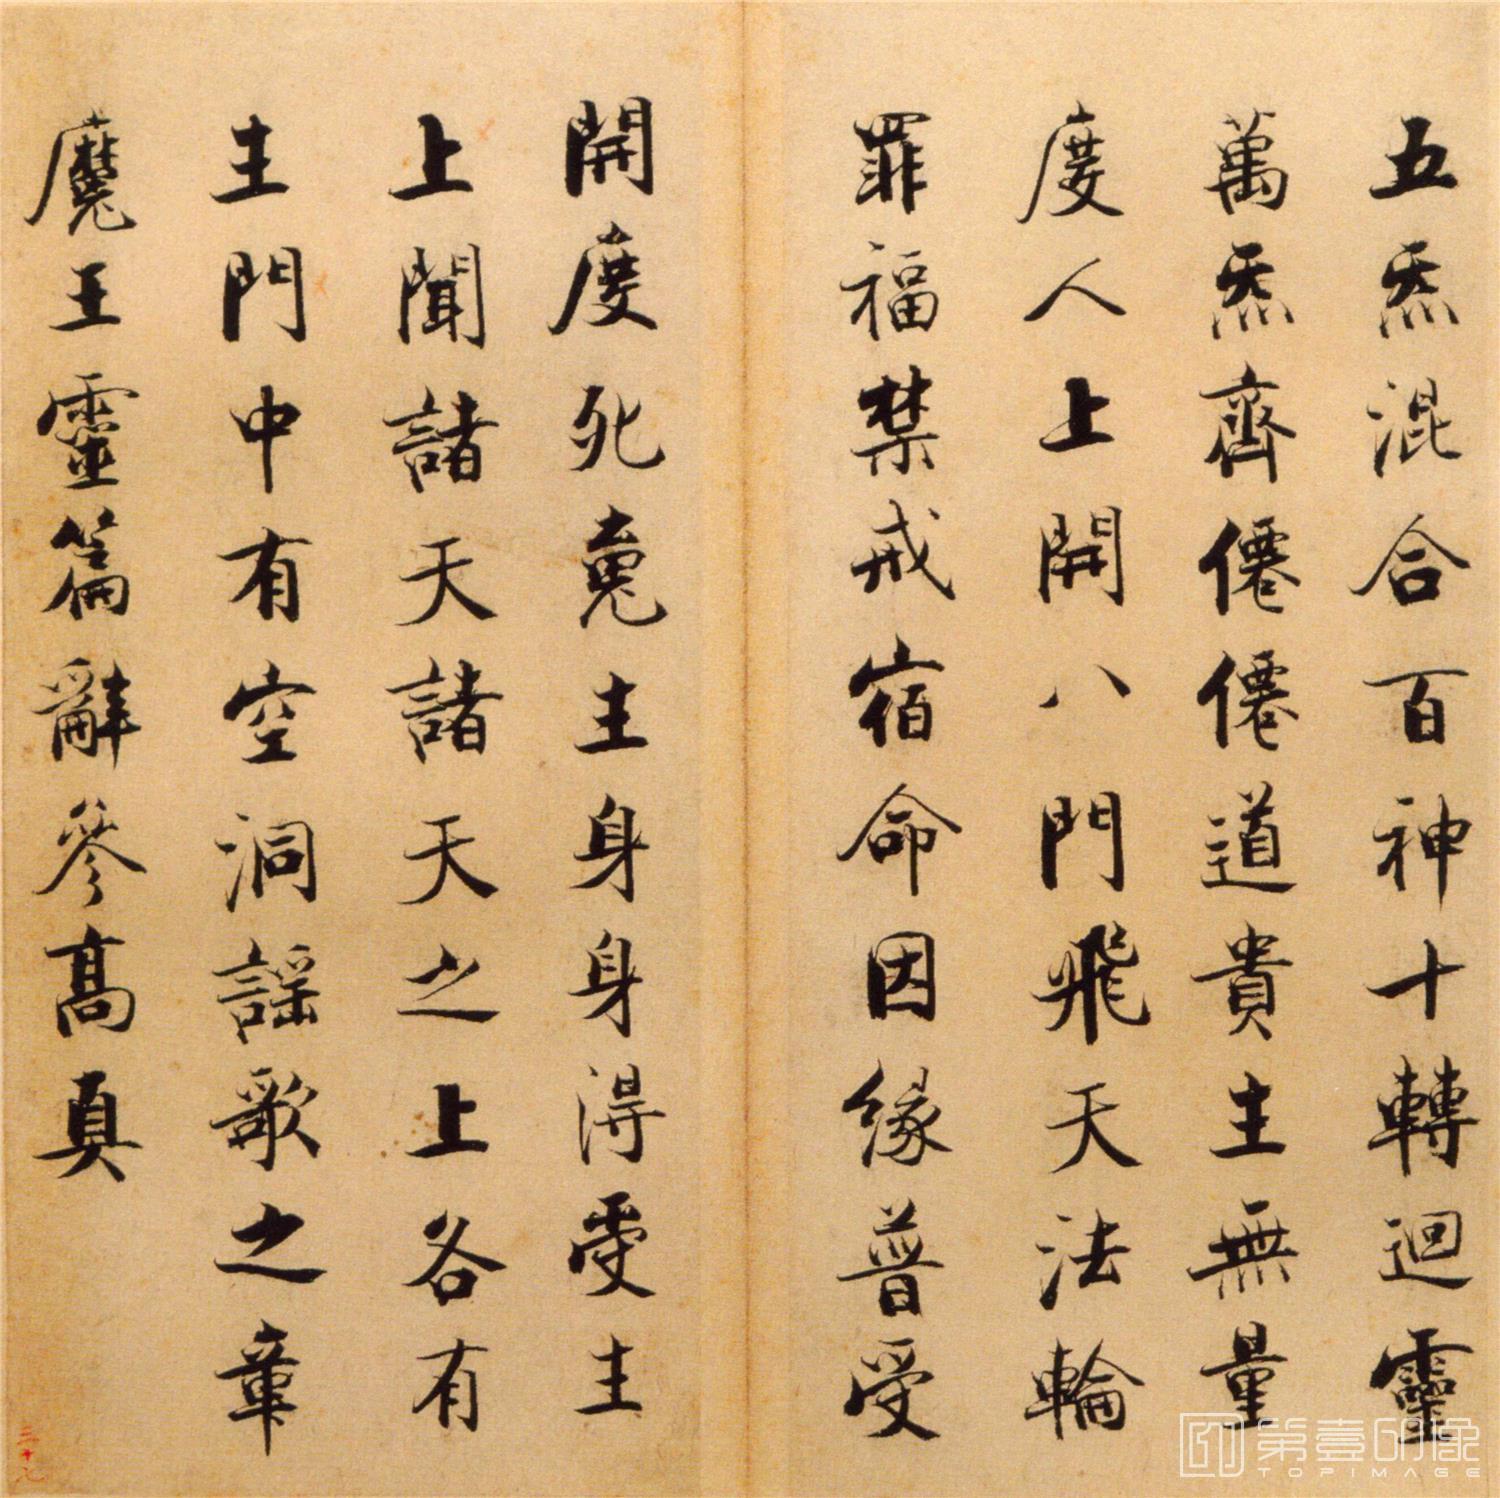 五炁混合百神十轉迴靈
萬炁齊僊僊道貴生無量
度人上開八門飛天法輪
罪福禁戒宿命因緣普受
開度死魂生身身得受生
上聞諸天諸天之上各有
生門中有空洞謠歌之章
魔王靈篇辭參高真
三十七
第壹印像
TOPIMAGE